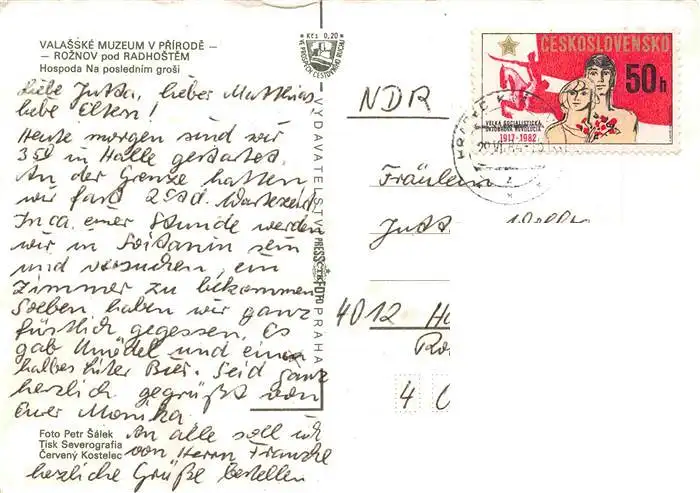 VALAŠSKÉ MUZEUM V PŘÍRODĚ –
– ROŽNOV pod RADHOŠTĚM
Hospoda Na posledním groši
Liebe Jutta, lieber Matthias
liebe Eltern!
Heute morgen sind wir
350 in Halle gestartet.
An der Grenze hatten
wir fast 2 Std. Wartezeit
In ca. einer Stunde werden
wir in sein
und versuchen, ein
Zimmer zu bekommen
Soeben haben wir ganz
fürstlich gegessen. Es
gab Knödel und einen
halbes Liter Bier. Seid ganz
herzlich gegrüßt von
Eurer Monika
An alle soll ich
von Herrn Francke
herzliche Grüße bestellen
Foto Petr Šálek
Tisk Severografia
Červený Kostelec
Kčs 0,20
VE PROSPĚCH CESTOVNÍHO RUCHU
VYDAVATELSTVÍ PRESSFOTO PRAHA
ČTK
ČESKOSLOVENSKO
50h
VELKÁ SOCIALISTICKÁ
ŘÍJNOVÁ REVOLUCE
1917-1982
HRADEC K
NDR
Fräulein
Jutta
4012 Ha
4 0